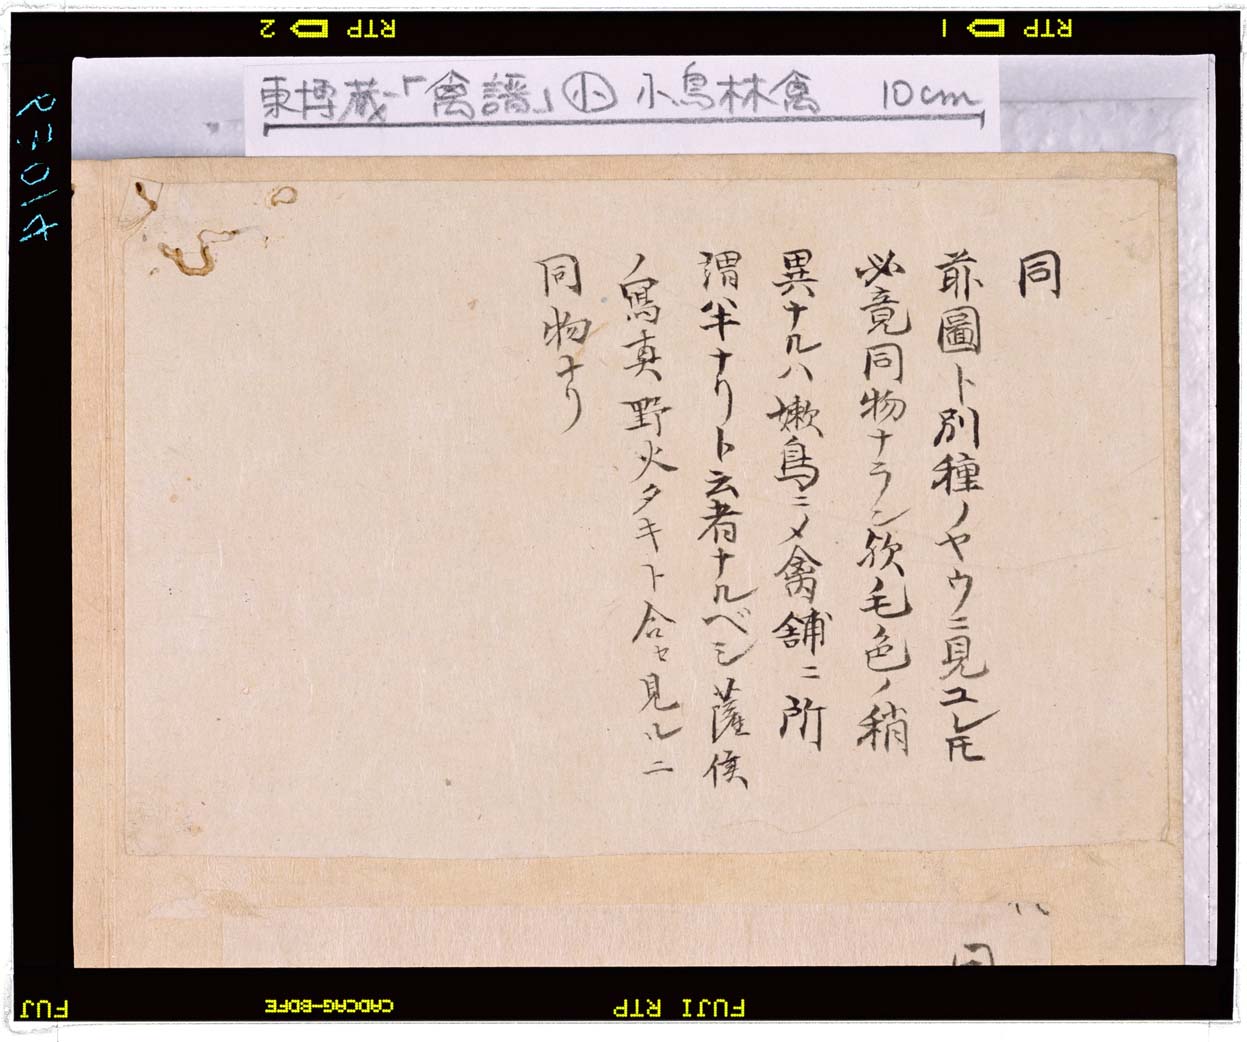 RTP 2
RTP 1
東博蔵「禽譜」小 小鳥林禽 10cm
同
前圖ト別種ノヤウニ見ユレ𪜈
必竟同物ナラン欤毛色ノ稍
異ナルハ嫩鳥ニ〆禽舗ニ所
謂半ナリト云者ナルベシ薩侯
ノ寫真野火タキト合セ見ルニ
同物ナリ
同
FUJ
CADCAG-BDFE
FUJI RTP